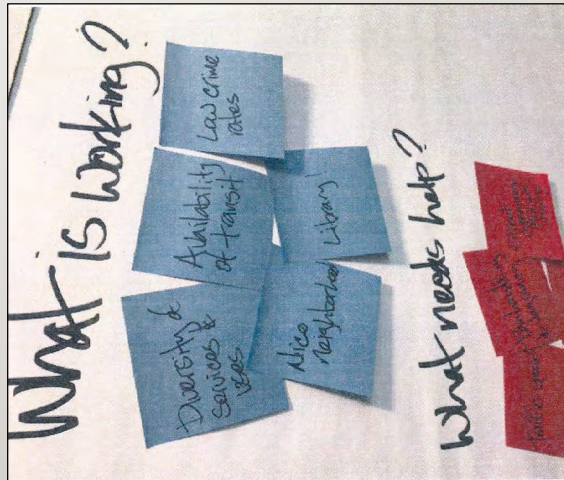 What is working?
Diversity of
services &
uses
Availability
of transit
Low crime
rates
Nice
neighborhood
Library!
What needs help?
Traffic speed